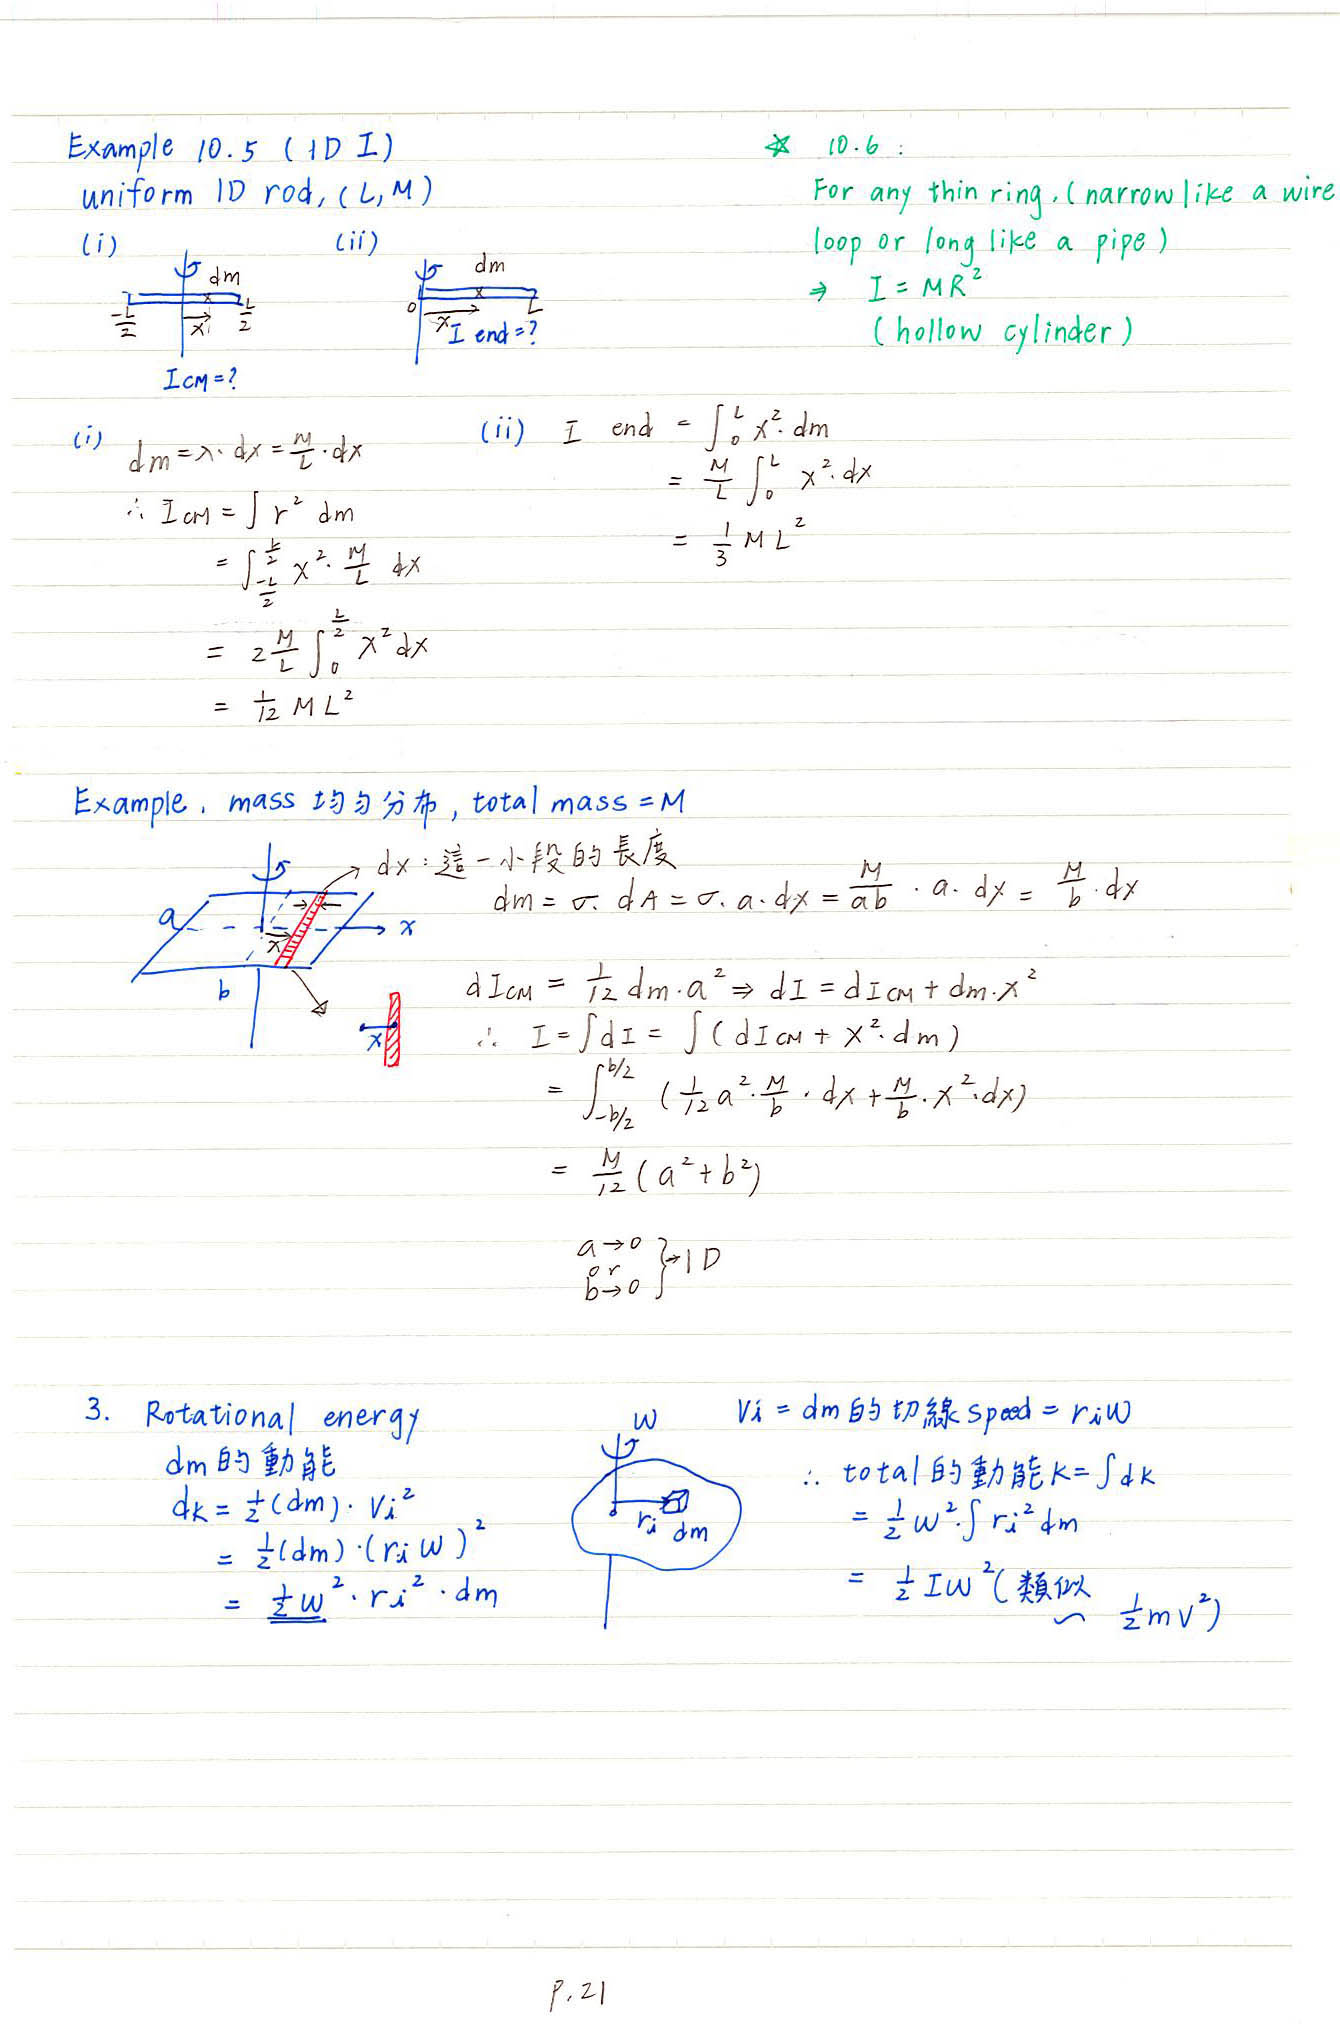 Example 10.5 (1D I)
uniform 1D rod, (L, M)
(i)
dm
-L/2
x
L/2
I CM = ?
(ii)
dm
0
x
L
I end = ?
☆ 10.6 :
For any thin ring. (narrow like a wire
loop or long like a pipe)
⇒ I = MR²
(hollow cylinder)
(i) dm = λ · dx = M/L · dx
∴ I CM = ∫ r² dm
= ∫_{-L/2}^{L/2} x² · M/L dx
= 2 M/L ∫_0^{L/2} x² dx
= 1/12 ML²
(ii) I end = ∫_0^L x² · dm
= M/L ∫_0^L x² · dx
= 1/3 ML²
Example. mass 均勻分布, total mass = M
a
b
x
x
x
dx : 這一小段的長度
dm = σ · dA = σ · a · dx = M/ab · a · dx = M/b · dx
dI CM = 1/12 dm · a² ⇒ dI = dI CM + dm · x²
∴ I = ∫dI = ∫(dI CM + x² · dm)
= ∫_{-b/2}^{b/2} (1/12 a² · M/b · dx + M/b · x² · dx)
= M/12 (a² + b²)
a → 0
or
b → 0
} → 1D
3. Rotational energy
dm 的動能
dk = 1/2 (dm) · Vi²
= 1/2 (dm) · (ri ω)²
= 1/2 ω² · ri² · dm
ω
ri
dm
Vi = dm 的切線 speed = ri ω
∴ total 的動能 K = ∫dk
= 1/2 ω² · ∫ ri² dm
= 1/2 Iω² (類似
1/2 mv²)
P. 21